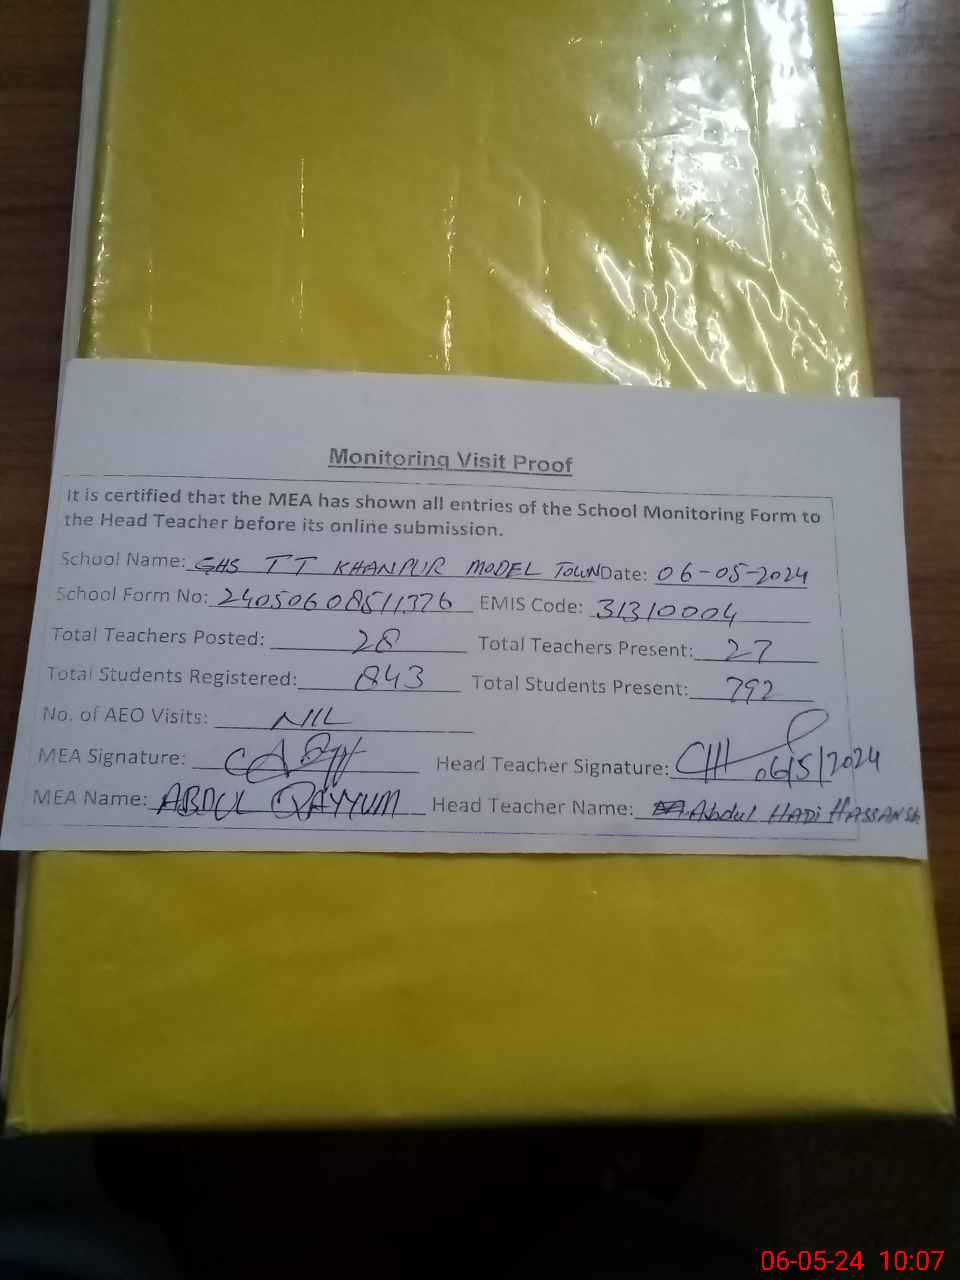 Monitoring Visit Proof
It is certified that the MEA has shown all entries of the School Monitoring Form to
the Head Teacher before its online submission.
School Name: GHS TT KHANPUR MODEL TOWN Date: 06-05-2024
School Form No: 24050608511376 EMIS Code: 31310004
Total Teachers Posted: 28 Total Teachers Present: 27
Total Students Registered: 843 Total Students Present: 792
No. of AEO Visits: NIL
MEA Signature: Head Teacher Signature: 06/5/2024
MEA Name: ABDUL QAYYUM Head Teacher Name: Abdul HADi HASSAN
06-05-24 10:07